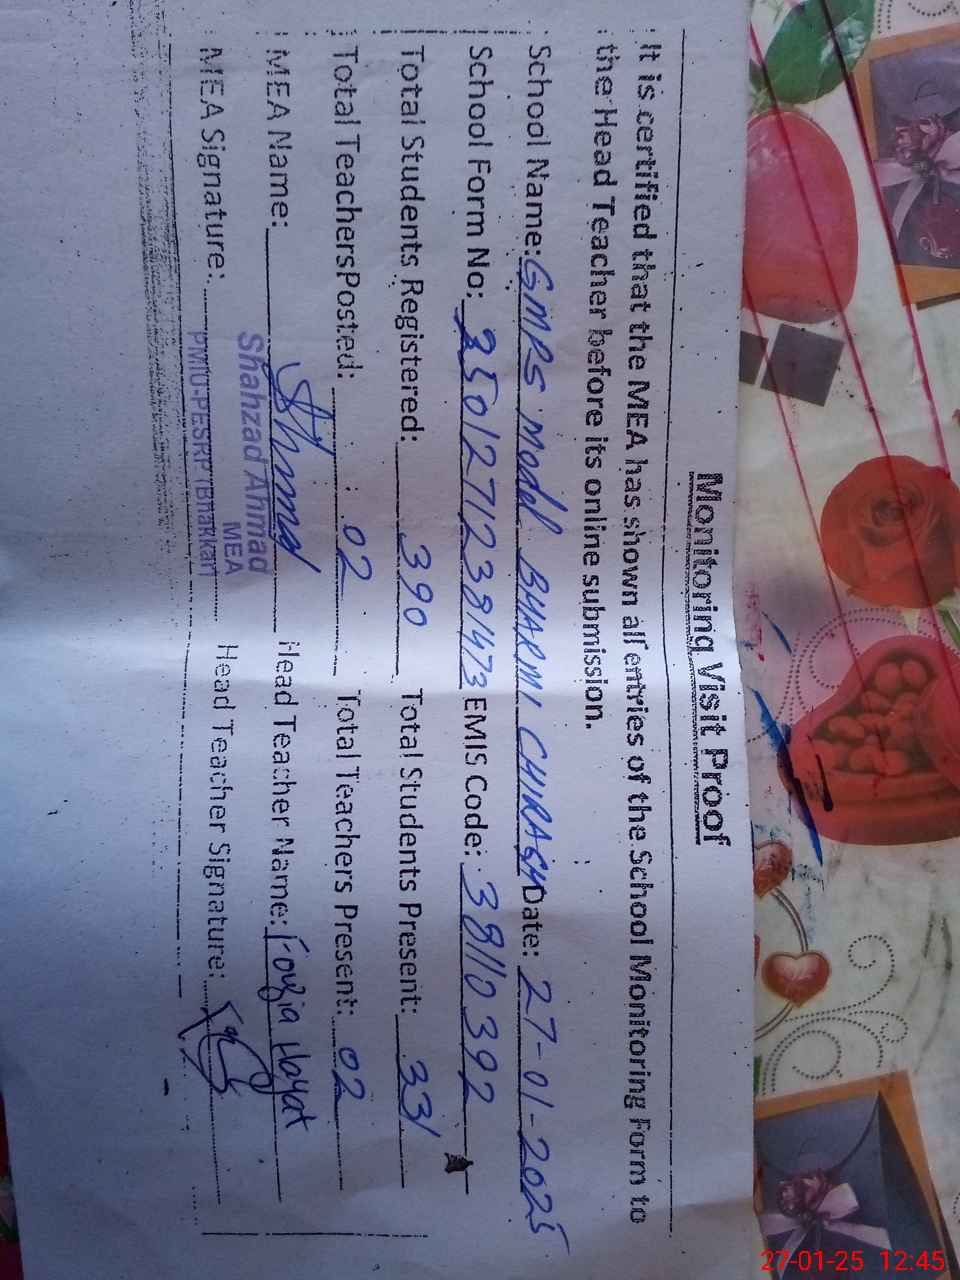 Monitoring Visit Proof
It is certified that the MEA has shown all entries of the School Monitoring Form to
the Head Teacher before its online submission.
School Name: GMPS Model BHARMI CHIRAGH Date: 27-01-2025
School Form No: 35012712381473 EMIS Code: 38110392
Total Students Registered: 390 Total Students Present: 331
Total TeachersPosted: 02 Total Teachers Present: 02
MEA Name: Head Teacher Name: Fouzia Hayat
MEA Signature: Head Teacher Signature:
Shahzad Ahmad
MEA
PMIU-PESRP (Bhakkar)
27-01-25 12:45